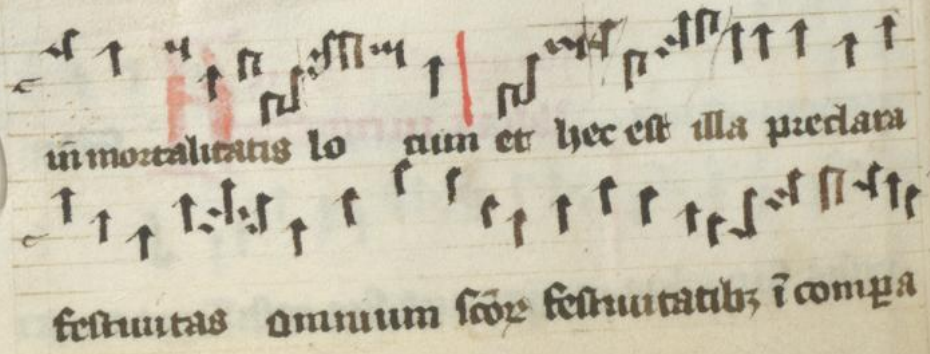 in mortalitatis lo cum et hec est illa preclara
festiuitas omnium sc̄oꝝ festiuitatibꝫ ī comꝑa